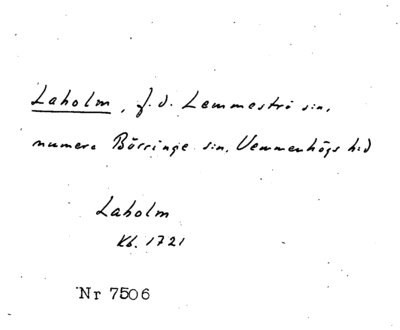 Laholm, f.d. Lemmeströ sn,
numera Börringe sn, Vemmenhögs hd
Laholm
Kb. 1721
Nr 7506